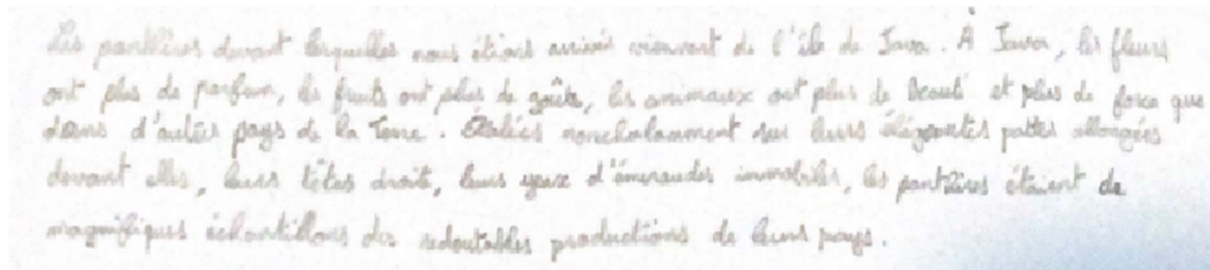 Les panthères devant lesquelles nous étions arrivés viennent de l'île de Java. À Java, les fleurs
ont plus de parfum, les fruits ont plus de goûts, les animaux ont plus de beauté et plus de force que
dans d'autres pays de la Terre. Étalées nonchalamment sur leurs élégantes pattes allongées
devant elles, leurs têtes droite, leurs yeux d'émeraudes immobiles, les panthères étaient de
magnifiques échantillons des redoutables productions de leurs pays.